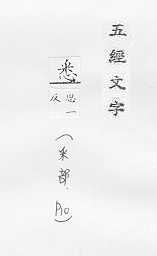 五經文字
悉
思一
反
(釆部,
P10)